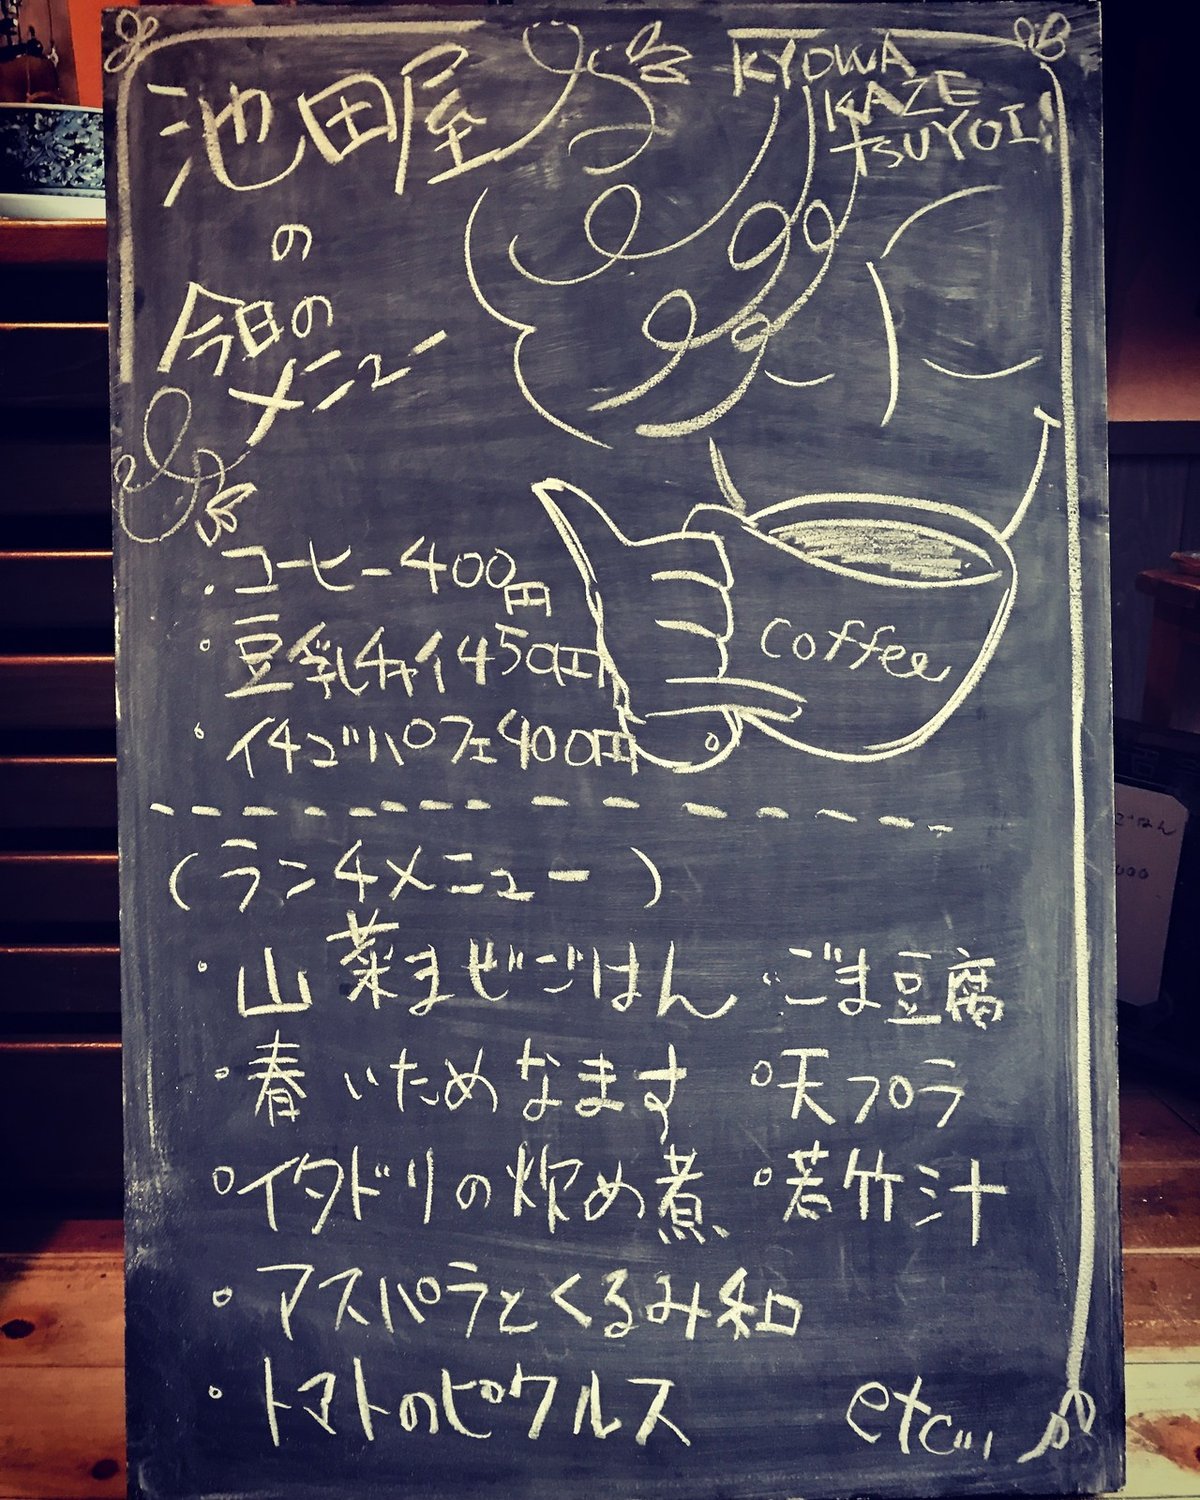 池田屋
の
今日の
メニュー
KYOWA
KAZE
TSUYOI!
・コーヒー400円
・豆乳チャイ450円
・イチゴパフェ400円
coffee
(ランチメニュー)
・山菜まぜごはん ・ごま豆腐
・春いためなます ・天プラ
・イタドリの炊め煮 ・若竹汁
・アスパラとくるみ和
・トマトのピクルス etc...
ごはん